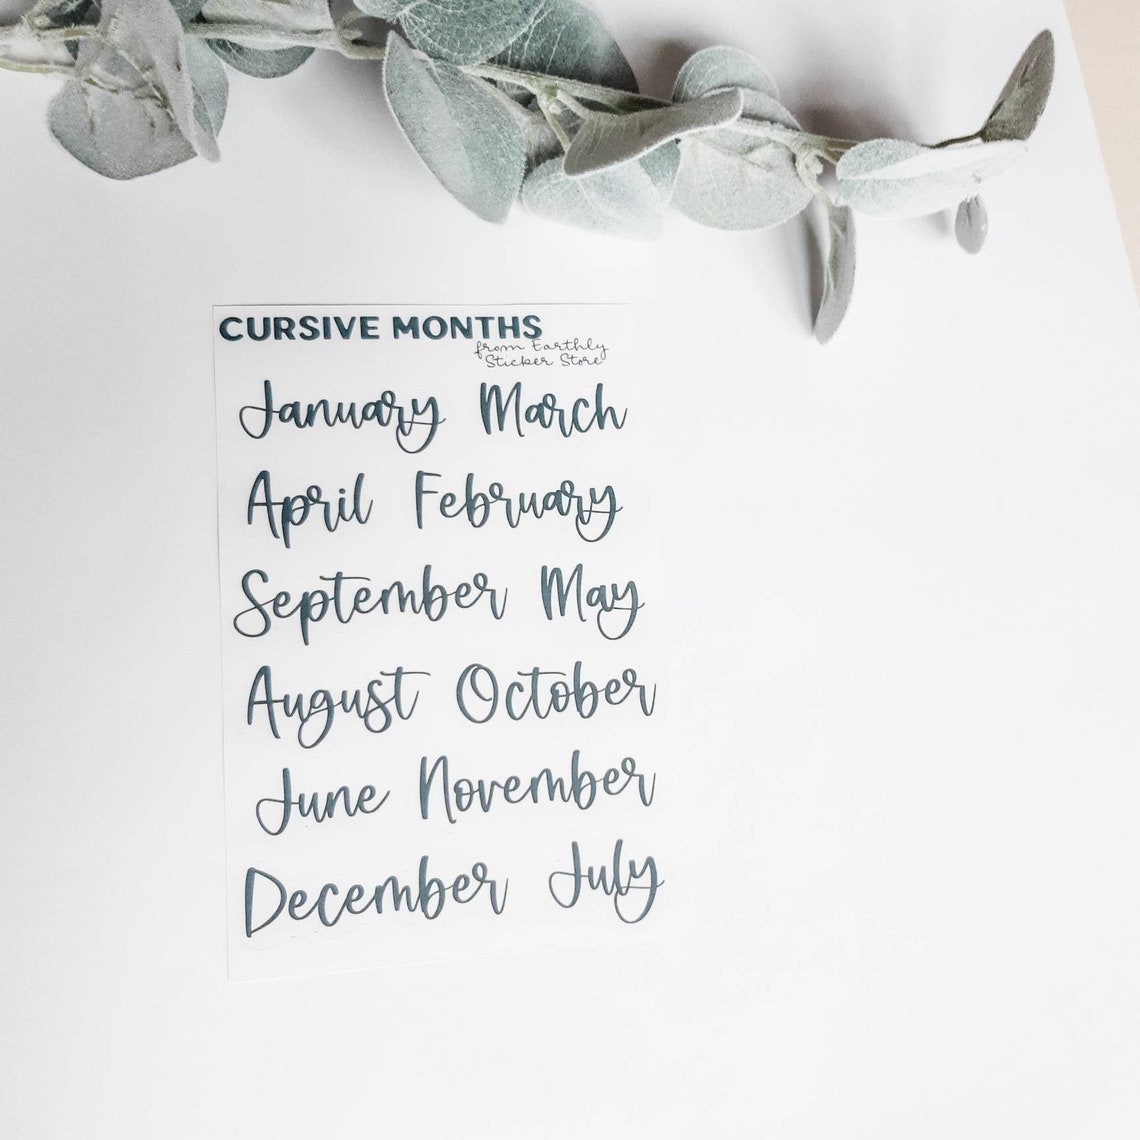 CURSIVE MONTHS
from Earthly
Sticker Store
January March
April February
September May
August October
June November
December July